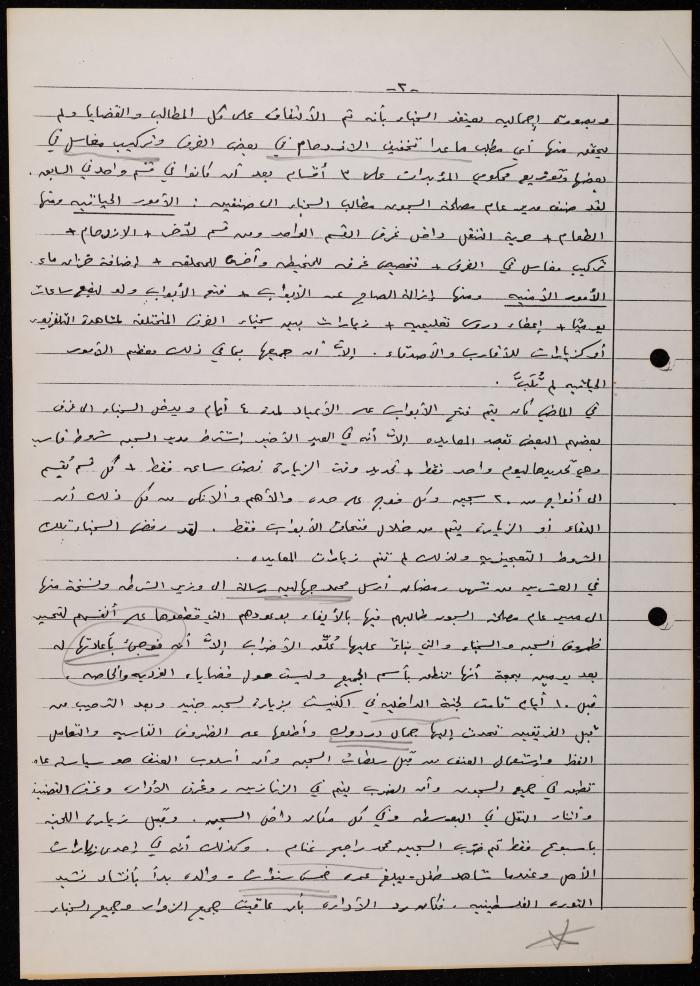 -٣-
وبصورة إجمالية يعتقد السجناء بأنه تم الألتفاف على كل المطالب والقضايا ولم
يتحقق منها أي مطلب ما عدا تخفيف الازدحام في بعض الغرف وتركيب مغاسل في
بعضها وتوزيع محكومي المؤبدات على ٣ أقسام بعد أن كانوا في قسم واحد في السابق.
لقد صنف مدير عام مصلحة السجون مطالب السجناء الى صنفين: الأمور الحياتيه ومنها
الطعام + حرية التنقل داخل غرف القسم الواحد ومن قسم لآخر + الازدحام +
تركيب مغاسل في الغرف + تخصيص غرفه للمخيطه وأخرى للمحلقه + إضافة خزان ماء.
الأمور الأمنيه ومنها إزالة الصاج عن الأبواب + فتح الأبواب ولو لبضع ساعات
يوميًا + إعطاء دروس تعليميه + زيارات بين سجناء الغرف المختلفه لمشاهدة التلفزيون
أو كزيارات للأقارب والأصدقاء. إلاّ أن جميعها بما في ذلك معظم الأمور
الحياتيه لم تُلَبَّ.
في الماضي كان يتم فتح الأبواب على الأعياد لمدة ٤ أيام ويدخل السجناء الى غرف
بعضهم البعض بقصد المعايده إلاّ أنه في العيد الأخير إشترط مدير السجن شروط قاسيه
وهي تحديدها ليوم واحد فقط + تحديد وقت الزيارة نصف ساعه فقط + كل قسم يُقسم
الى أفواج من ٢٠ سجين وكل فوج على حده والأهم والأنكى من كل ذلك أن
اللقاء أو الزيارة يتم من خلال فتحات الأبواب فقط. لقد رفض السجناء تلك
الشروط التعجيزيه ولذلك لم تتم زيارات المعايده.
في العشرين من شهر رمضان أرسل محمد جهالين رسالة الى وزير الشرطه ونسخة منها
الى مدير عام مصلحة السجون طالبهم فيها بالأيفاء بوعودهم التي قطعوها على أنفسهم لتحسين
ظروف السجن والسجناء والتي بناءً عليها عُلِّق الأضراب إلاّ أنه فوجئ بأعادتها له
بعد يومين بحجة أنها تنطق بأسم الجميع وليست حول قضاياه الفرديه والخاصه.
قبل ١٠ أيام قامت لجنة الداخليه في الكنيست بزيارة لسجن جنيد وبعد الترحيب من
قبل الفريقين تحدث إليها جمال دردوك وأطلعها على الظروف القاسيه والتعامل
الفظ وإستعمال العنف من قبل سلطات السجن وأن أسلوب العنف هو سياسة عامه
تطبق في جميع السجون وأن الضرب يتم في الزنازين وغرف الأداره وغرف التفتيش
وأثناء النقل في البوسطه وفي كل مكان داخل السجن. وقبل زيارة اللجنه
بأسبوع فقط تم ضرب السجين محمد راجح غنام. وكذلك أنه في إحدى زيارات
الأهل وعندما شاهد طفل يبلغ عمره خمس سنوات - والده بدأ بأنشاد نشيد
الثوره الفلسطينيه. فكان رد الأداره بأن عاقبت جميع الزوار وجميع السجناء